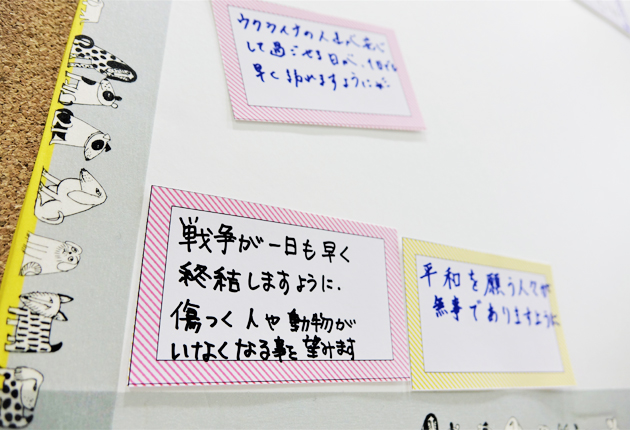 ウクライナの人達が安心
して過ごせる日が、1日も
早く訪れますように
戦争が一日も早く
終結しますように.
傷つく人や動物が
いなくなる事を望みます
平和を願う人々が
無事でありますように